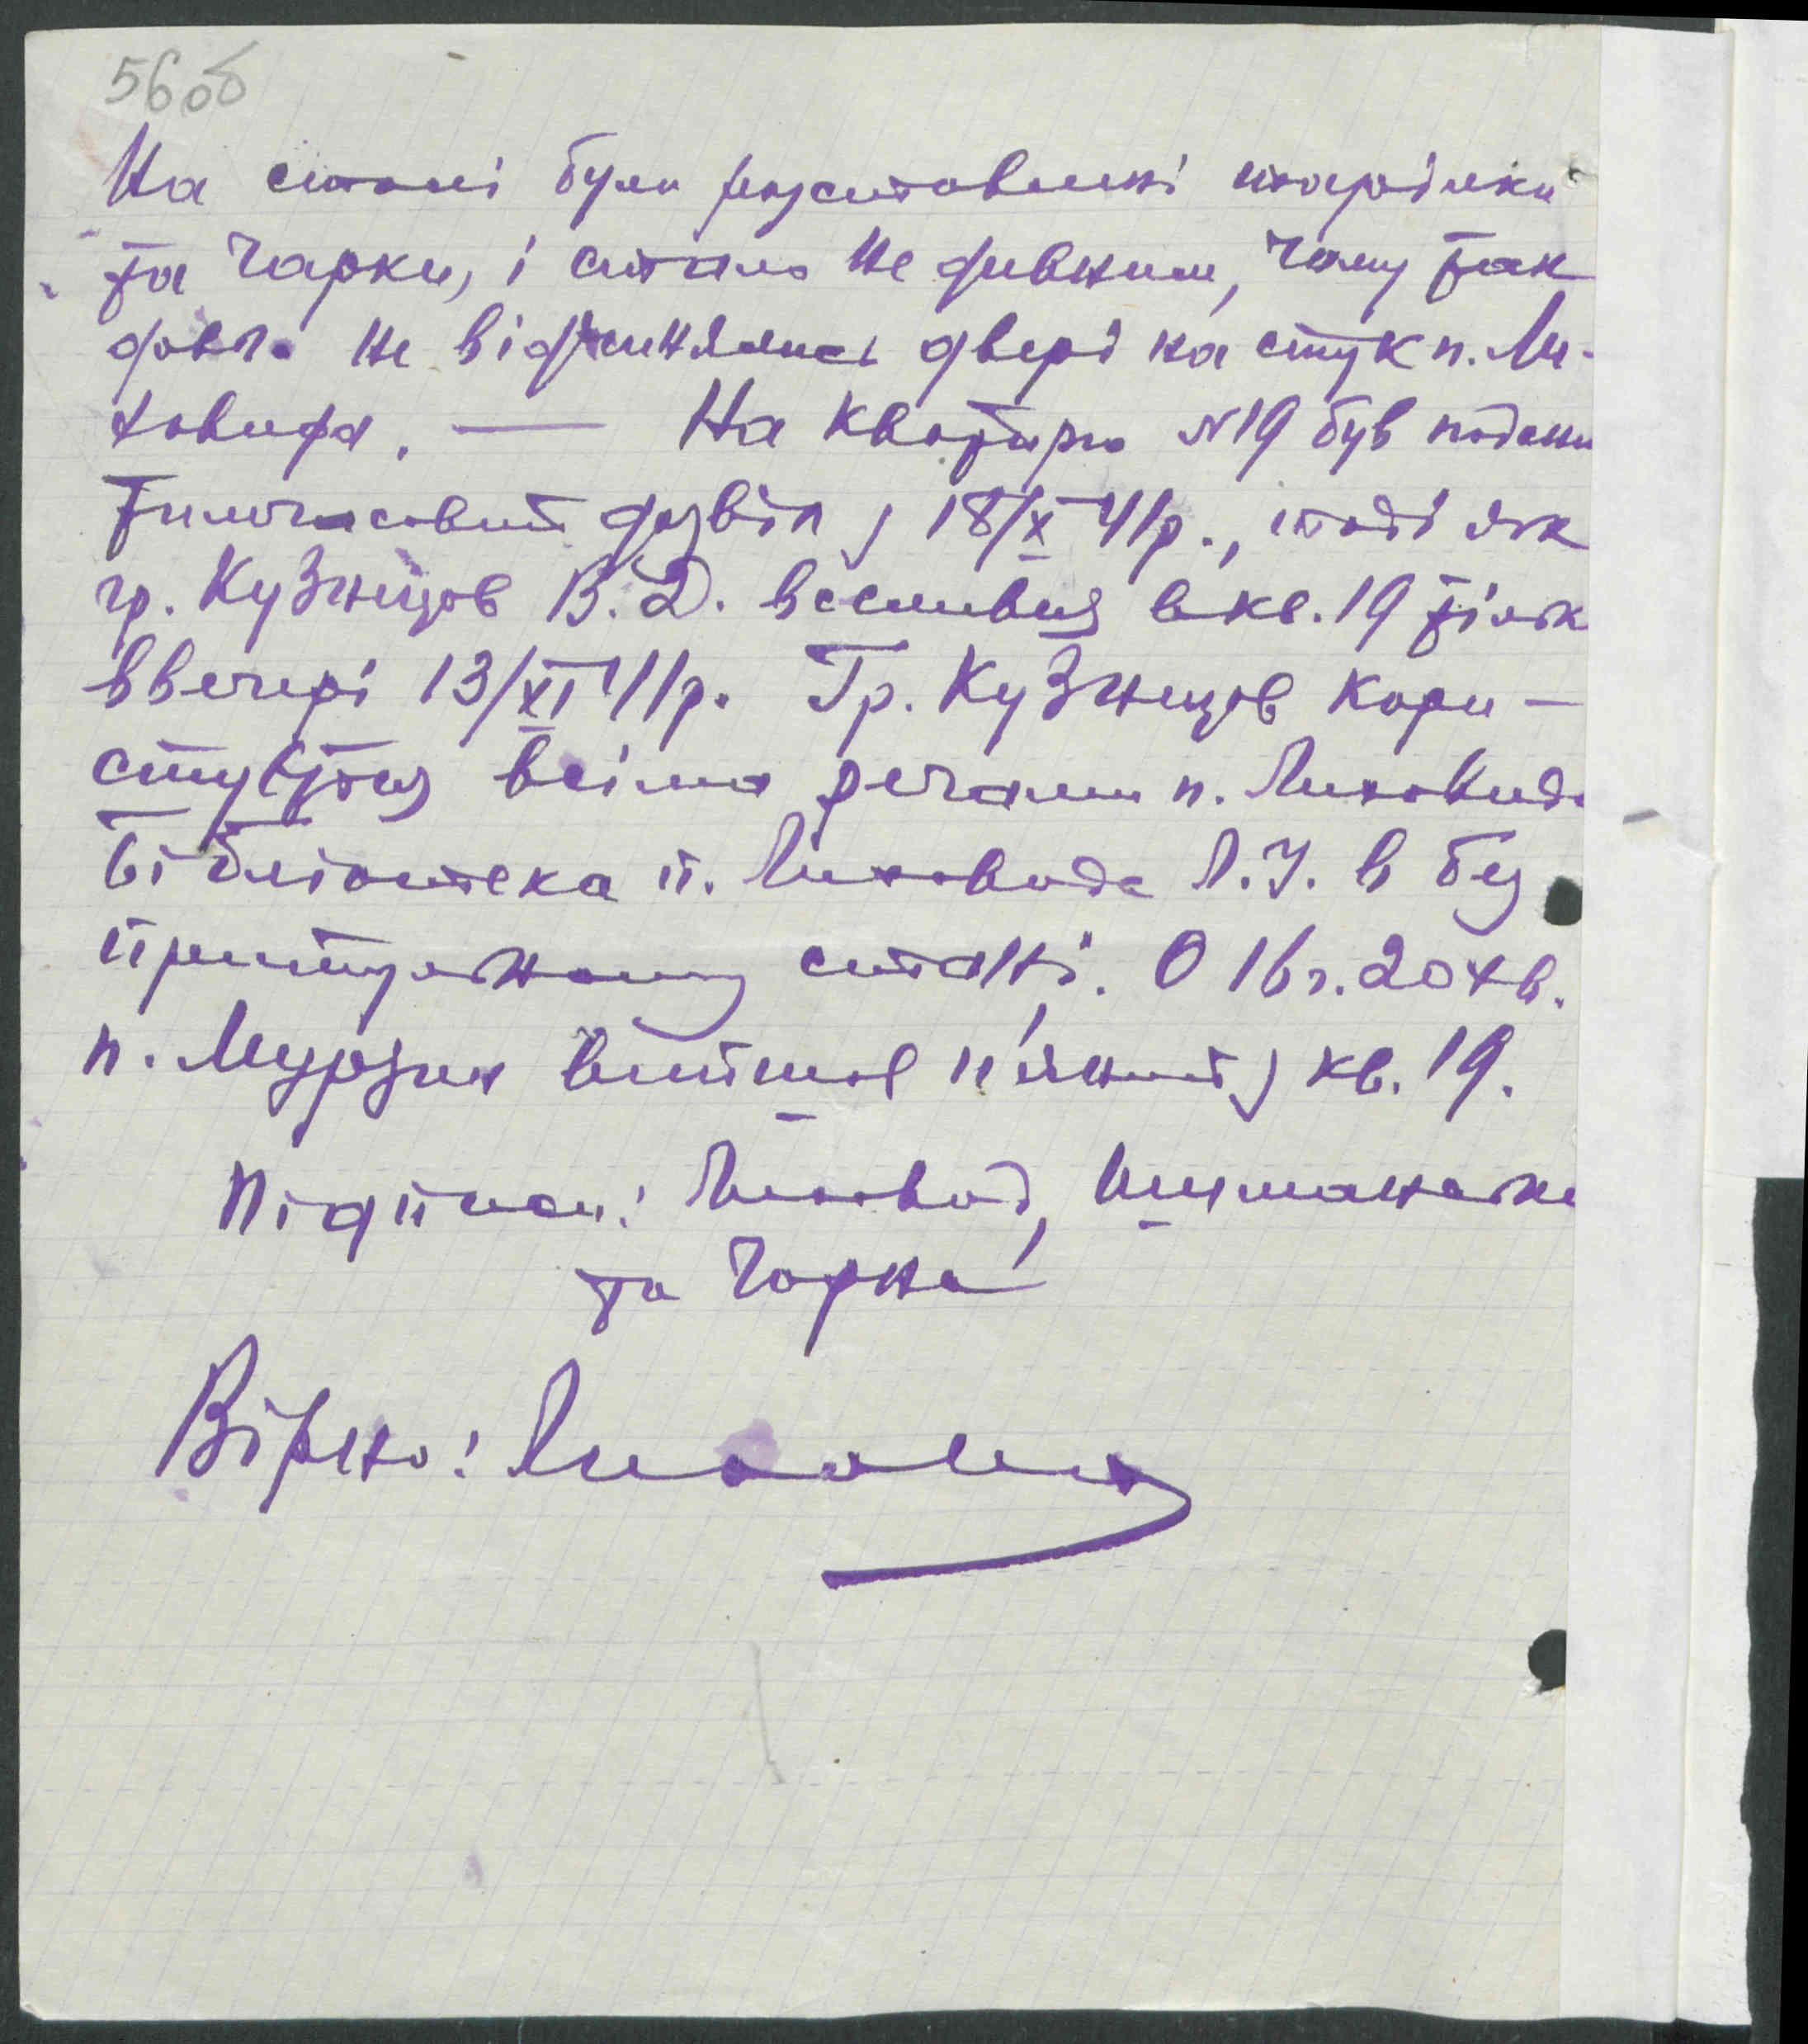 56об
На столі були розставлені тарілки
та чарки, і стало не дивним, чому так
довго не відчинялись двері на стук п. Ли-
ховида. — На квартиру №19 був поданий
тимчасовий дозвіл з 18/X 41р., тоді як
гр. Кузнецов В.Д. вселився в кв. 19 тільк
ввечері 13/XI 41р. Гр. Кузнецов кори-
стується всіма речами п. Лиховида
Бібліотека п. Лиховида Л.І. в без
притульному стані. О 16 г. 20 хв.
п. Мурзин вийшов п'яний з кв. 19.
Підписи: Лиховид,
та Чорна
Вірно: